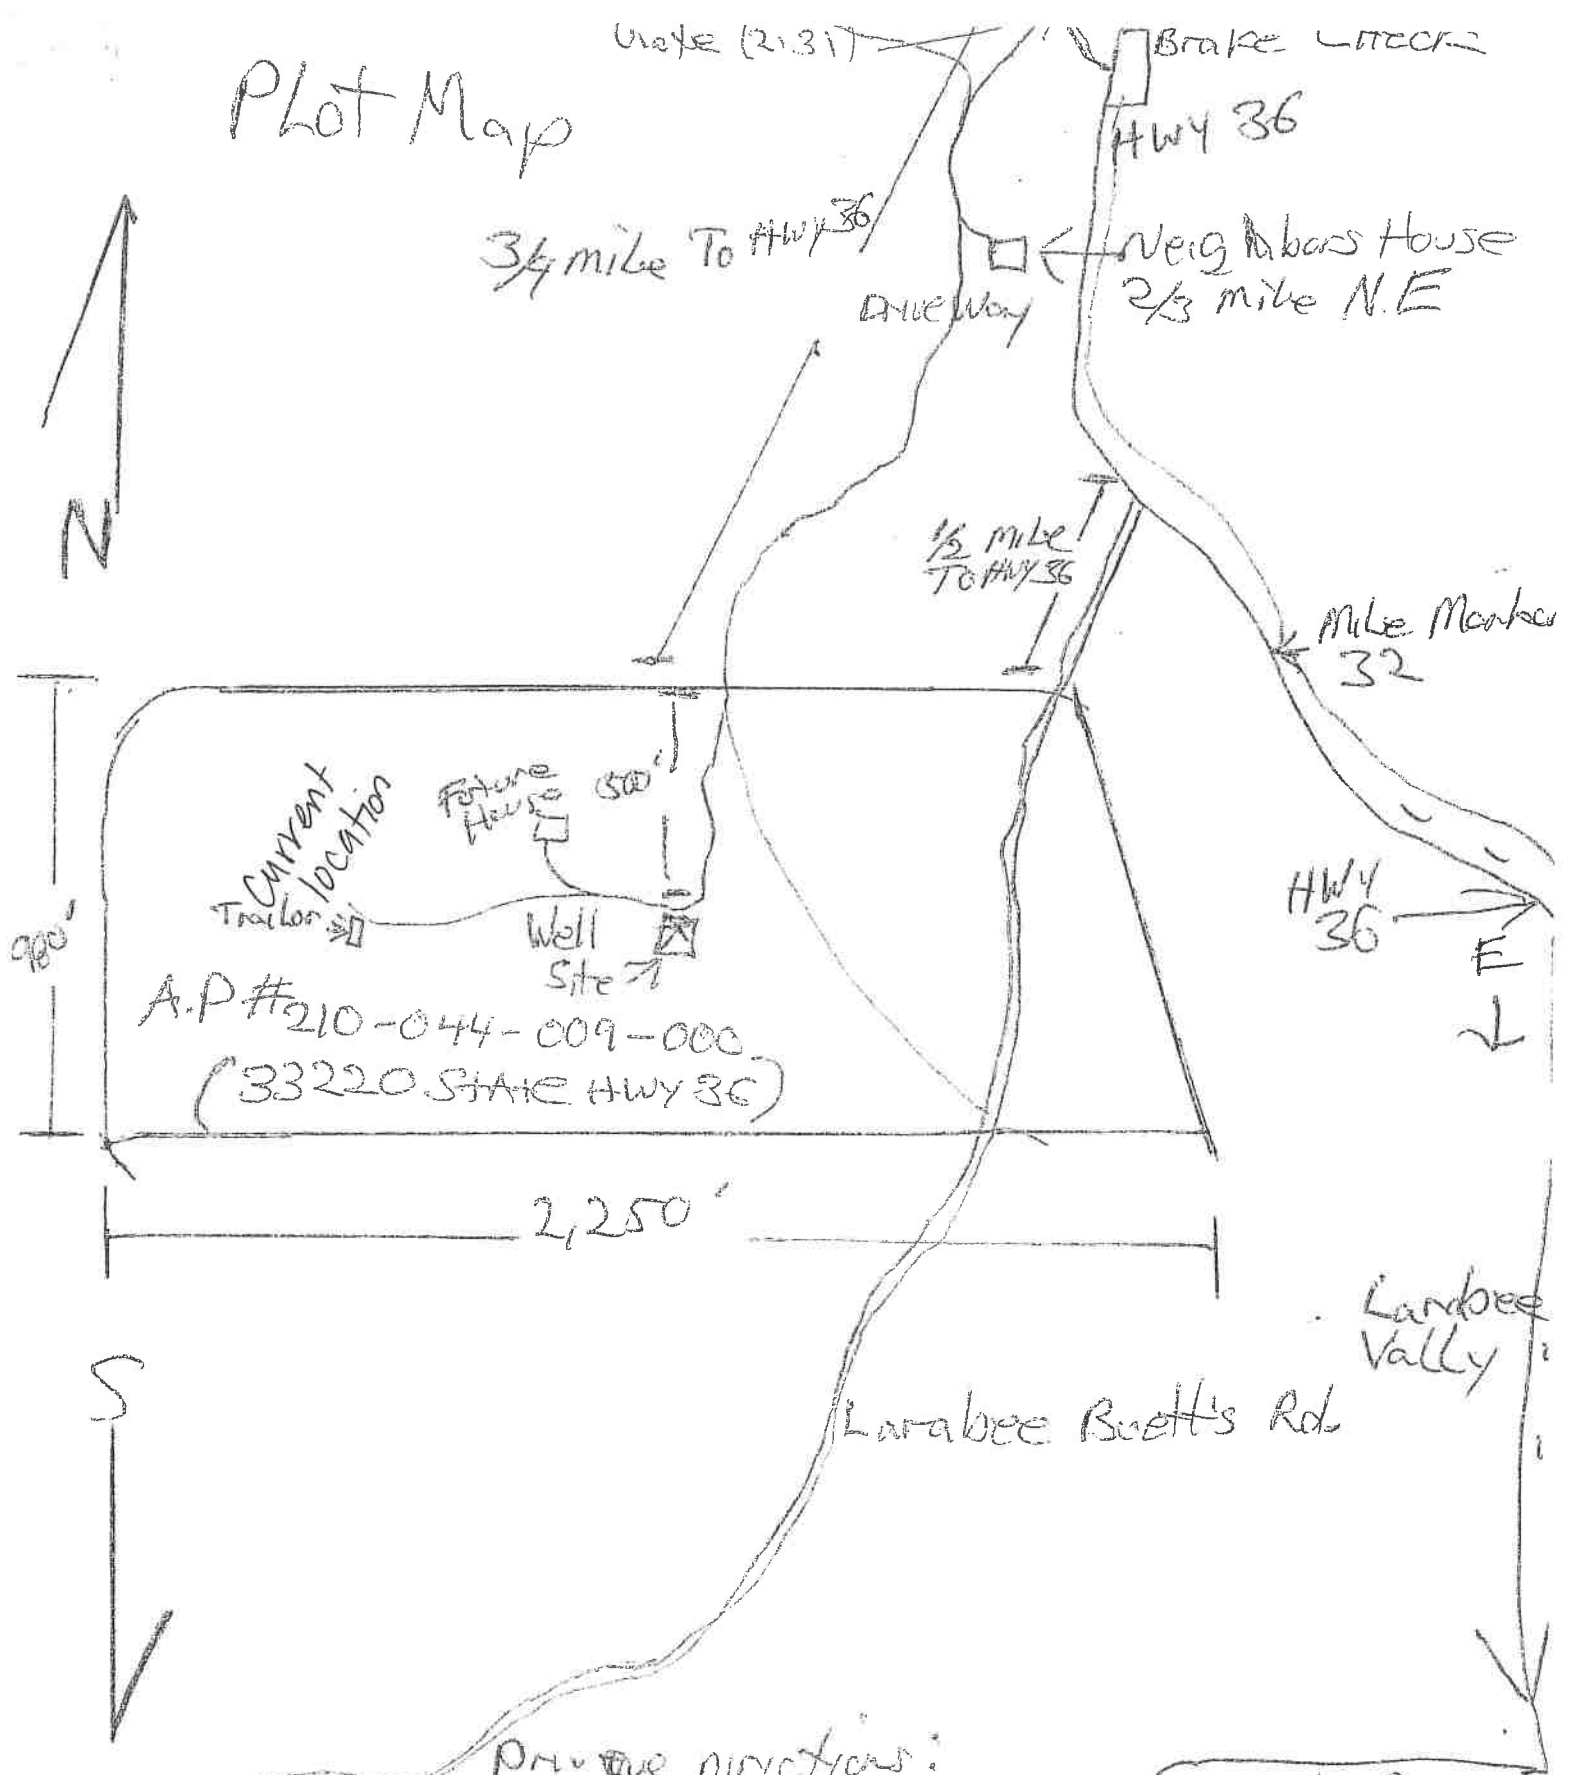 (2.31)
Brake Check
Plot Map
HWY 36
3/4 mile To HWY 36
Neighbors House
2/3 mile N.E
DriveWay
N
1/2 mile
To HWY 36
Mile Marker
32
Current
location
Future
House
500'
Trailor
Well
Site
HWY
36
E
900'
A.P# 210-044-009-000
(33220 STATE HWY 36)
2,250'
S
Larabee
Vally
Larabee Buett's Rd.
Driving Directions: